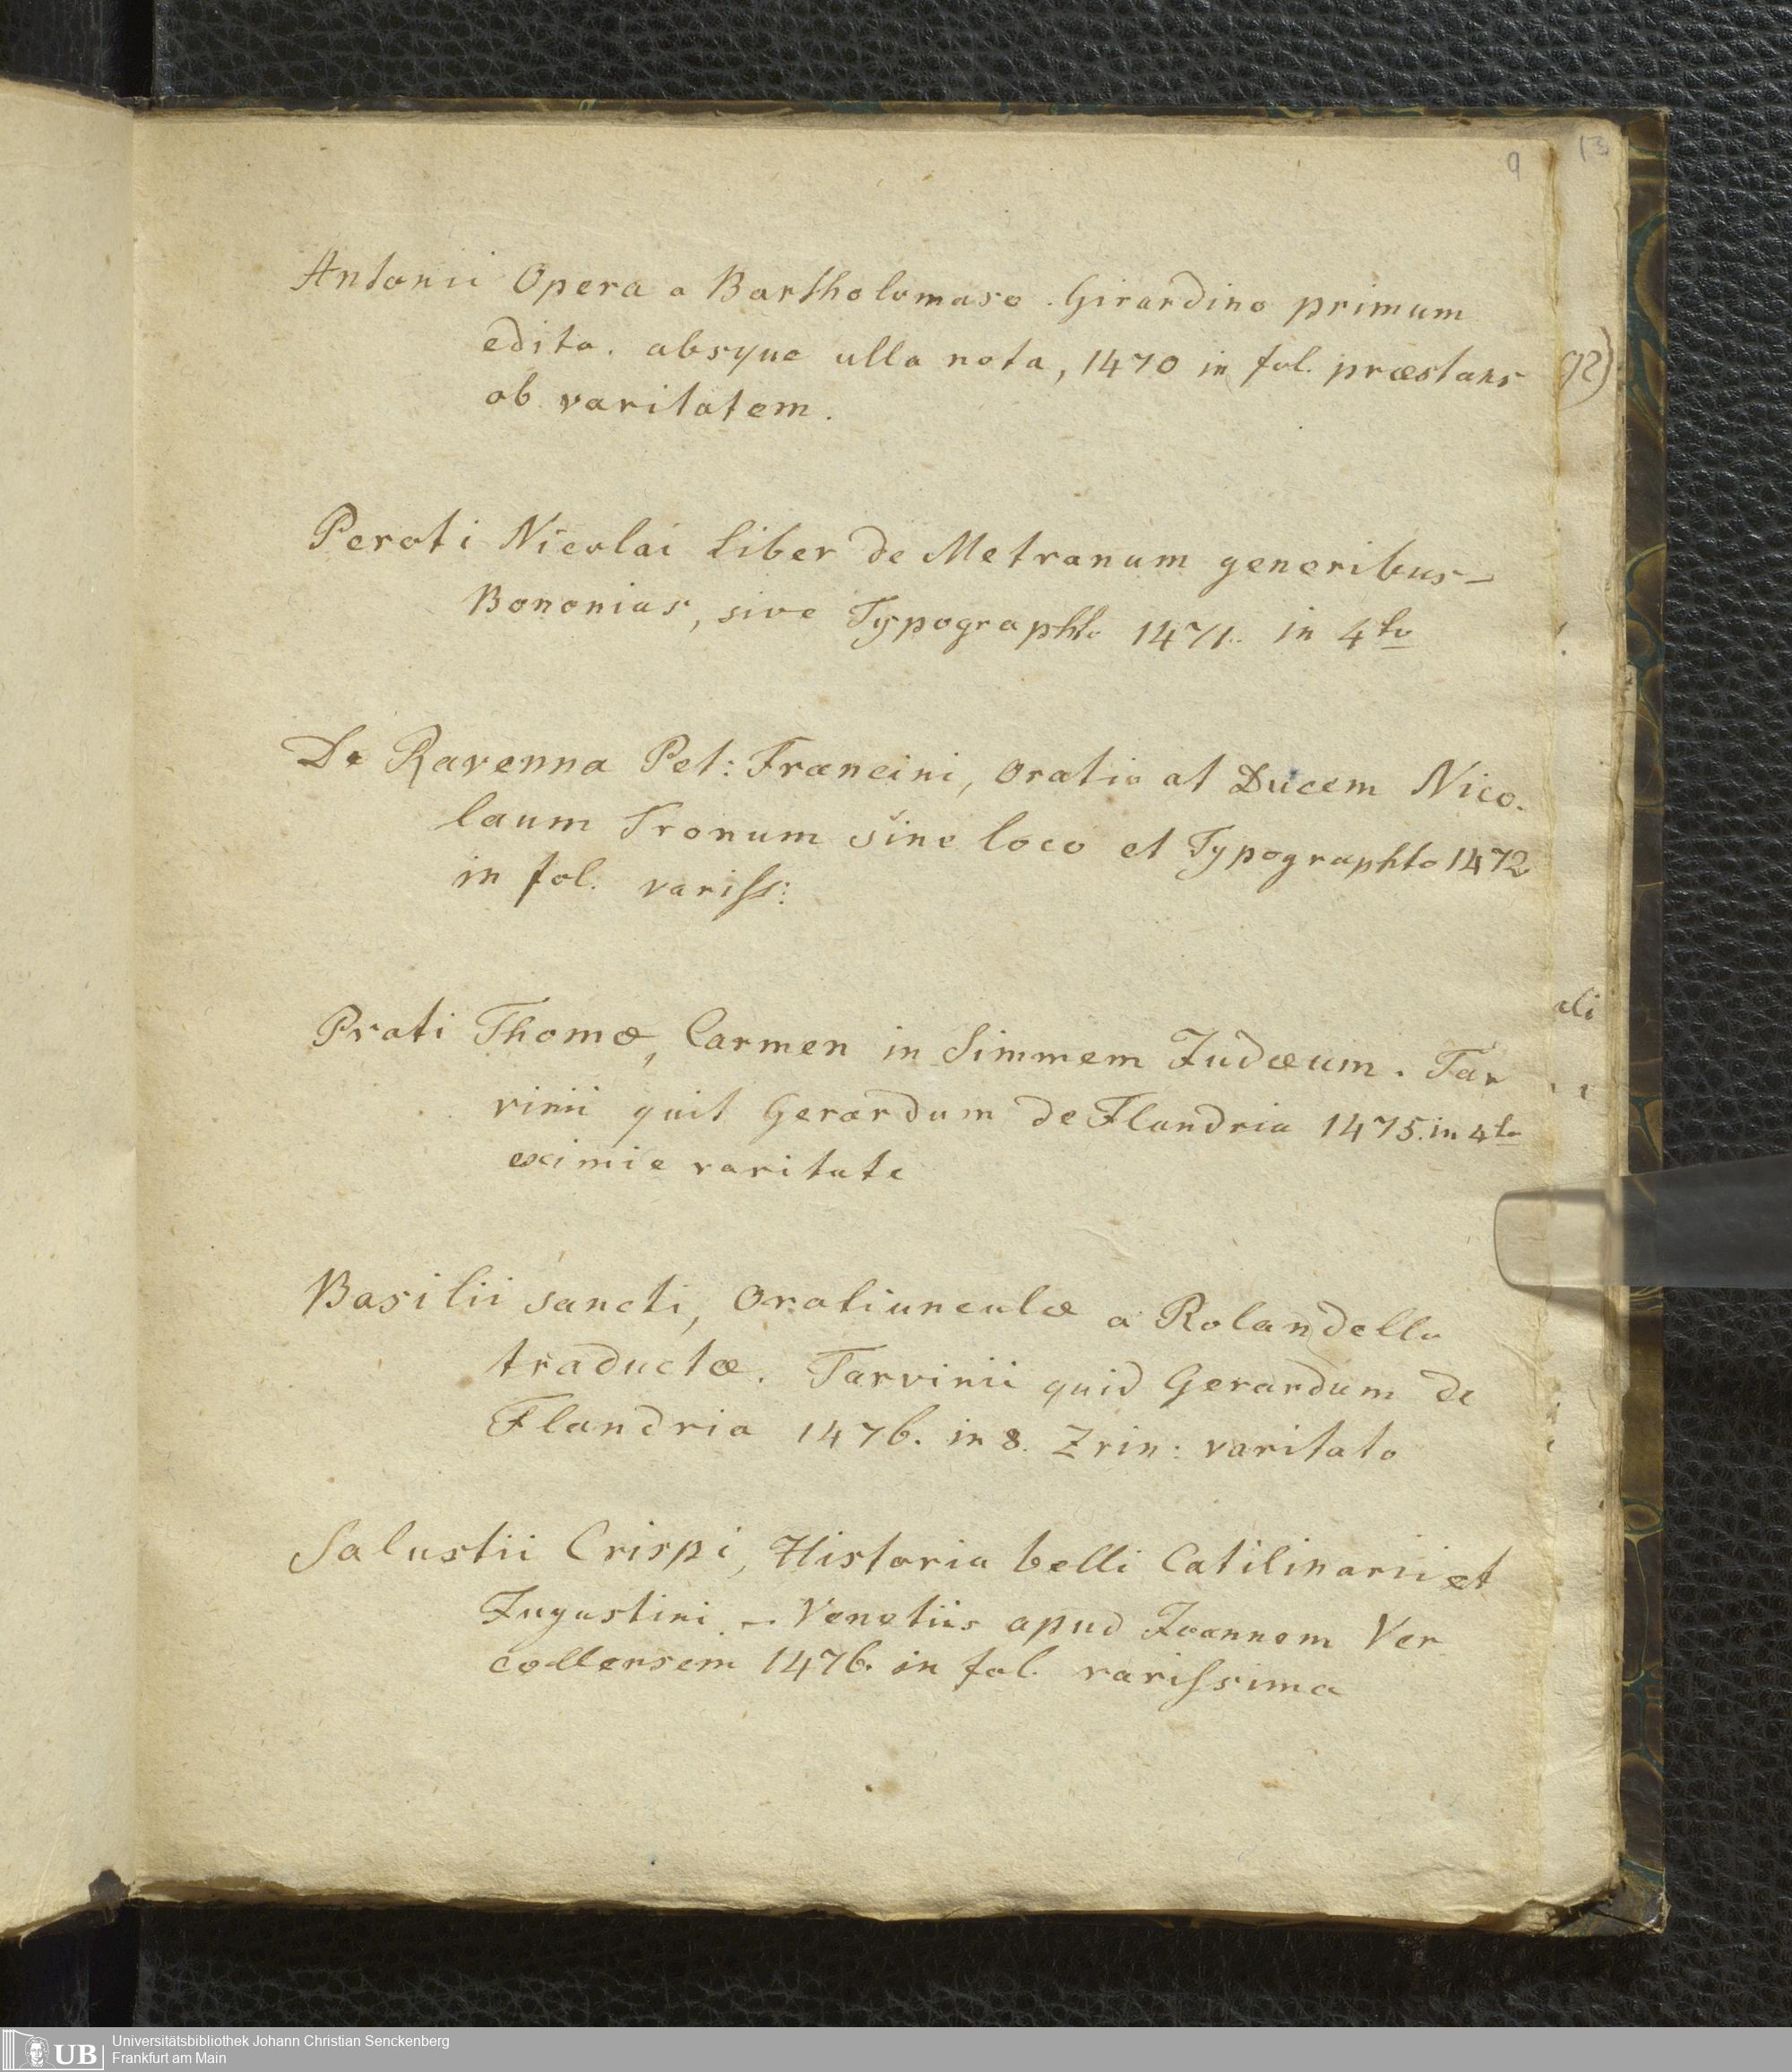 9
13
Antonii Opera a Bartholomaeo Girardino primum
edita. absque ulla nota, 1470 in fol. præstans
ob raritatem.
Peroti Nicolai Liber de Metranum generibus –
Bononias, sive Typographto 1471. in 4to
De Ravenna Pet: Francini, Oratio at Ducem Nico-
laum Tronum sine loco et Typographto 1472
in fol. rariss:
Prati Thomæ, Carmen in Simmem Judæum. Tar
vinii quit Gerardum de Flandria 1475. in 4to
eximie raritate
Basilii sancti, Oratiunculæ a Rolandello
traductæ. Tarvinii quid Gerardum de
Flandria 1476. in 8. Zrin: raritato
Salustii Crispi, Historia belli Catilinarii et
Jugustini. – Venetiis apud Joannem Ver
collensem 1476. in fol. rarissima
di
UB
Universitätsbibliothek Johann Christian Senckenberg
Frankfurt am Main